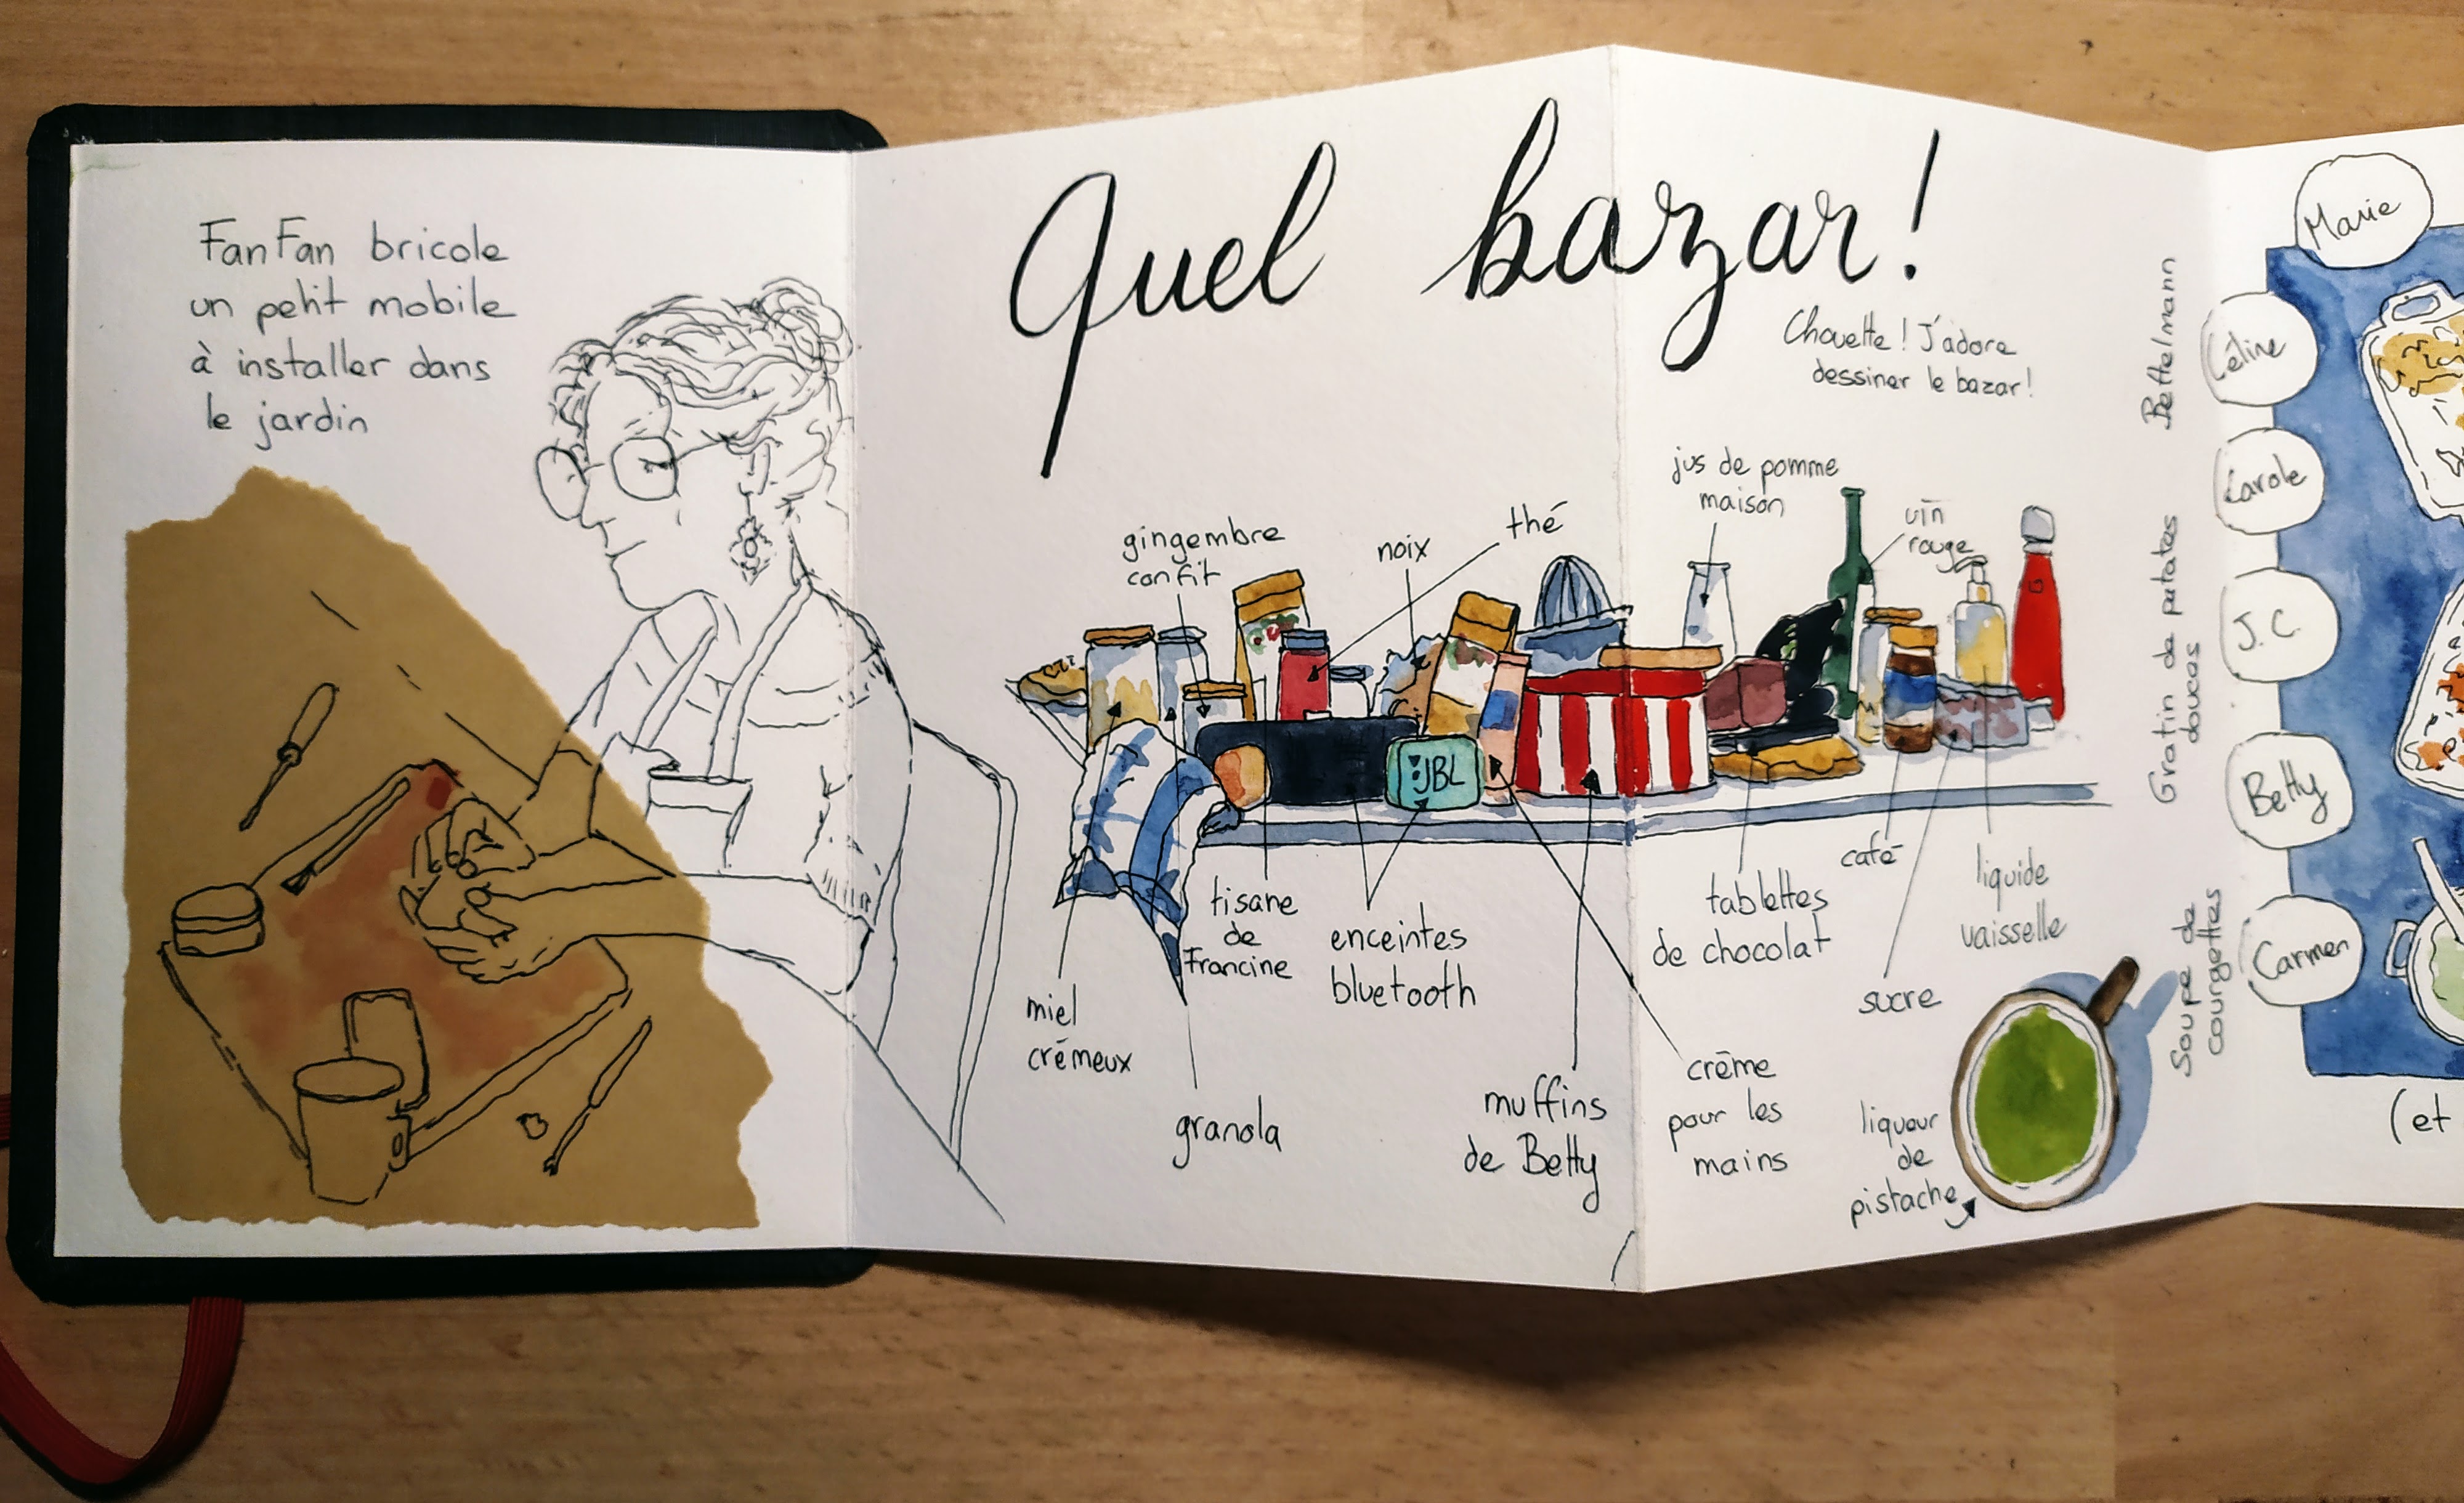 FanFan bricole
un petit mobile
à installer dans
le jardin
Quel bazar!
Chouette! J'adore
dessiner le bazar!
jus de pomme
maison
gingembre
confit
noix
thé
vin
rouge
JBL
miel
crémeux
tisane
de
Francine
granola
enceintes
bluetooth
muffins
de Betty
crème
pour les
mains
tablettes
de chocolat
café
sucre
liquide
vaisselle
liqueur
de
pistache
Bettelmann
Gratin de patates
douces
Soupe de
courgettes
Marie
Céline
Carole
J.C.
Betty
Carmen
(et